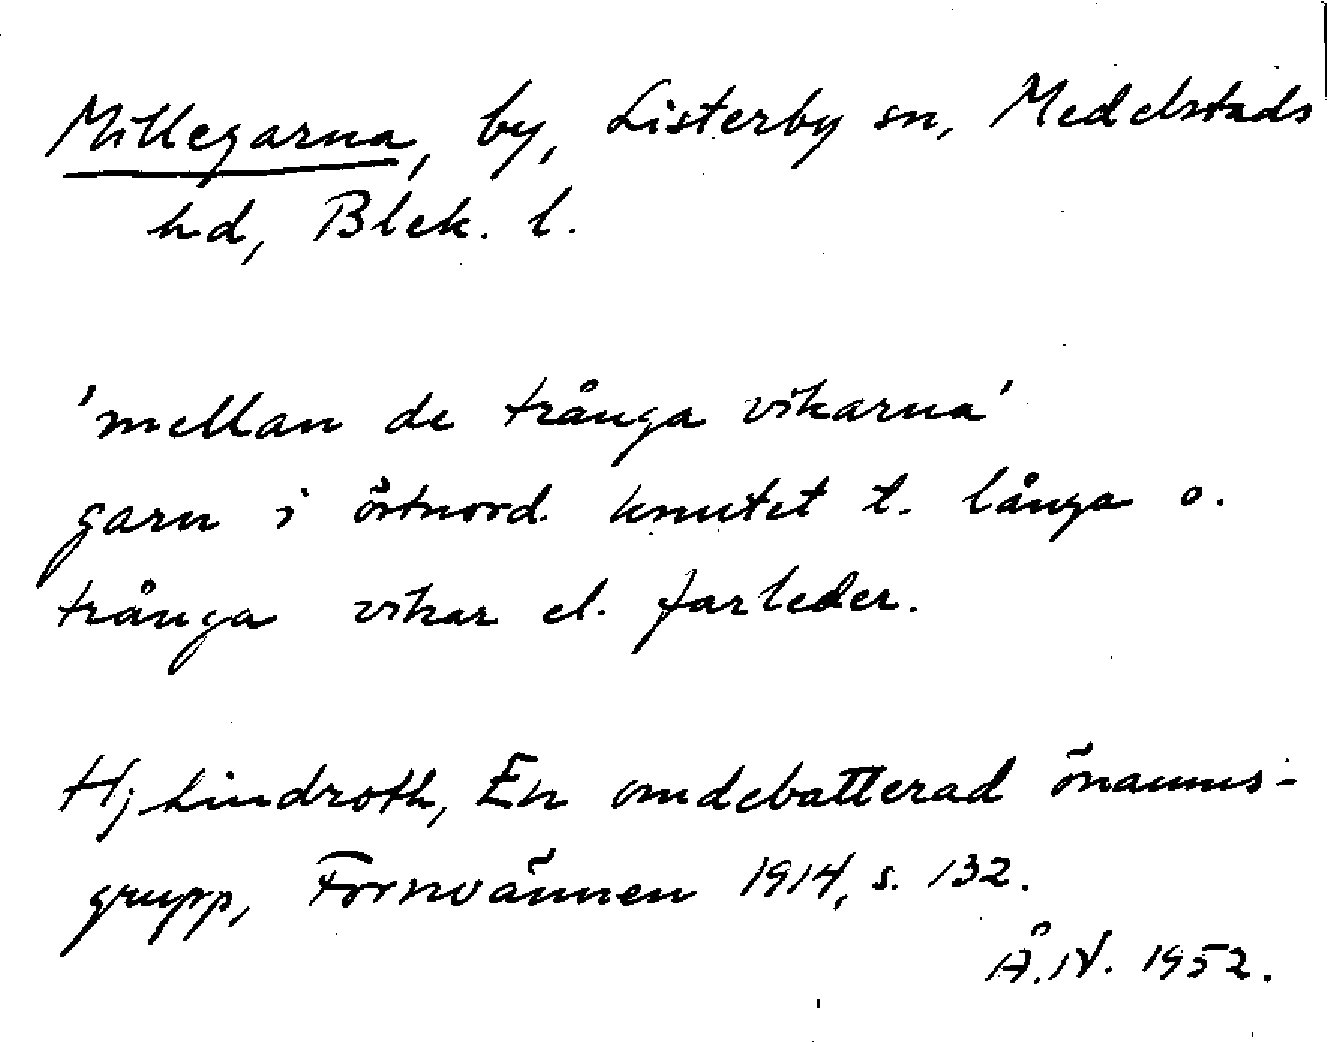 Millegarna, by, Listerby sn, Medelstads
hd, Blek. l.
'mellan de trånga vikarna'
garn i östnord. knutet t. långa o.
trånga vikar el. farleder.
Hj Lindroth, En omdebatterad önamns-
grupp, Fornvännen 1914, s. 132.
Å.N. 1952.